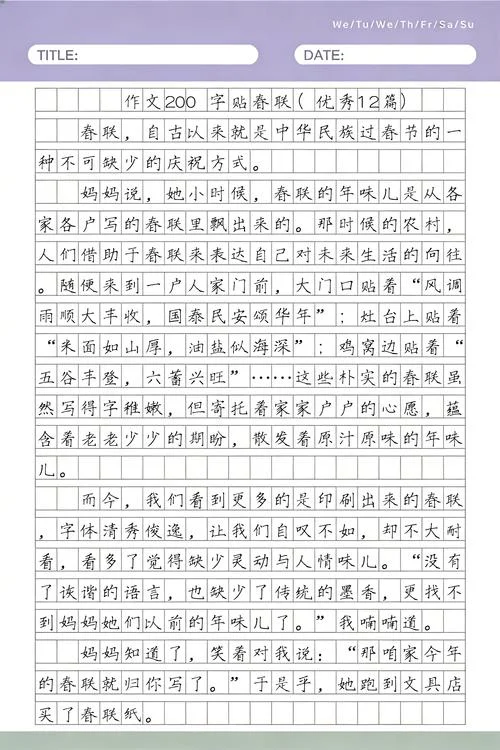 We/Tu/We/Th/Fr/Sa/Su
TITLE:
DATE:
作文200 字贴春联( 优秀12篇)
春联，自古以来就是中华民族过春节的一
种不可缺少的庆祝方式。
妈妈说，她小时候，春联的年味儿是从各
家各户写的春联里飘出来的。那时候的农村，
人们借助于春联来表达自己对未来生活的向往
。随便来到一户人家门前，大门口贴着“风调
雨顺大丰收，国泰民安颂华年”；灶台上贴着
“米面如山厚，油盐似海深”；鸡窝边贴着“
五谷丰登，六蓄兴旺”……这些朴实的春联虽
然写得字稚嫩，但寄托着家家户户的心愿，蕴
含着老老少少的期盼，散发着原汁原味的年味
儿。
而今，我们看到更多的是印刷出来的春联
，字体清秀俊逸，让我们自叹不如，却不大耐
看，看多了觉得缺少灵动与人情味儿。“没有
了诙谐的语言，也缺少了传统的墨香，更找不
到妈妈她们以前的年味儿了。”我喃喃道。
妈妈知道了，笑着对我说：“那咱家今年
的春联就归你写了。”于是乎，她跑到文具店
买了春联纸。